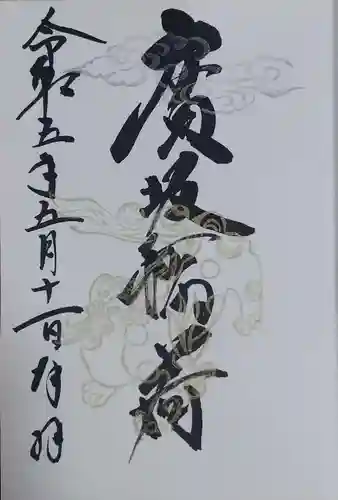 廣坂稲荷
令和五年五月十一日拝拜